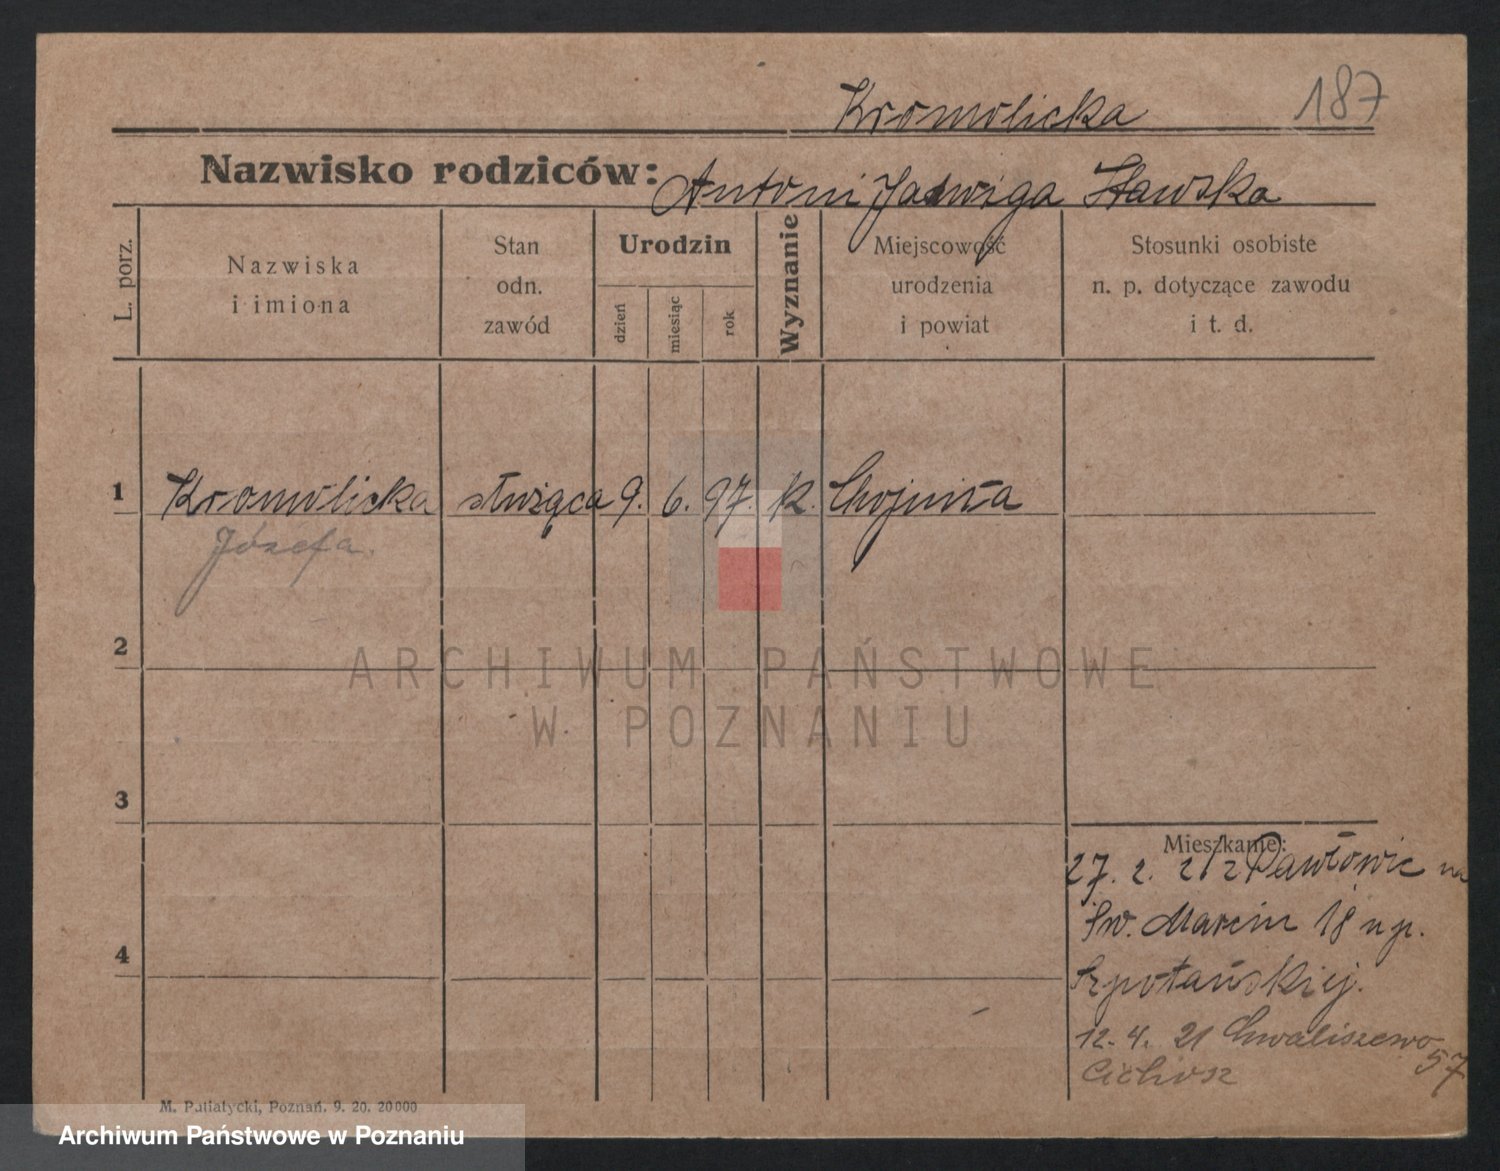 187
Kromolicka
Nazwisko rodziców: Antoni Jadwiga Sławska
L. porz.
Nazwiska
i imiona
Stan
odn.
zawód
Urodzin
dzień
miesiąc
rok
Wyznanie
Miejscowość
urodzenia
i powiat
Stosunki osobiste
n. p. dotyczące zawodu
i t. d.
1 Kromolicka służąca 9. 6. 97. k. Chojnica
Józefa.
2
ARCHIWUM PAŃSTWOWE
W POZNANIU
3
Mieszkanie:
27. 2. 21 z Pawłowic na
Św. Marcin 18 u p.
Szpotańskiej.
4
12. 4. 21 Chwaliszewo
57
Cichosz
M. Putiatycki, Poznań. 9. 20. 20000
Archiwum Państwowe w Poznaniu